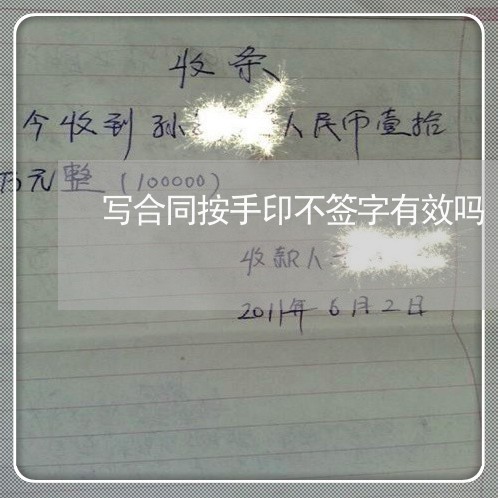 收条
今收到孙 人民币壹拾
万元整（100000）
写合同按手印不签字有效吗
收款人
2011年6月2日